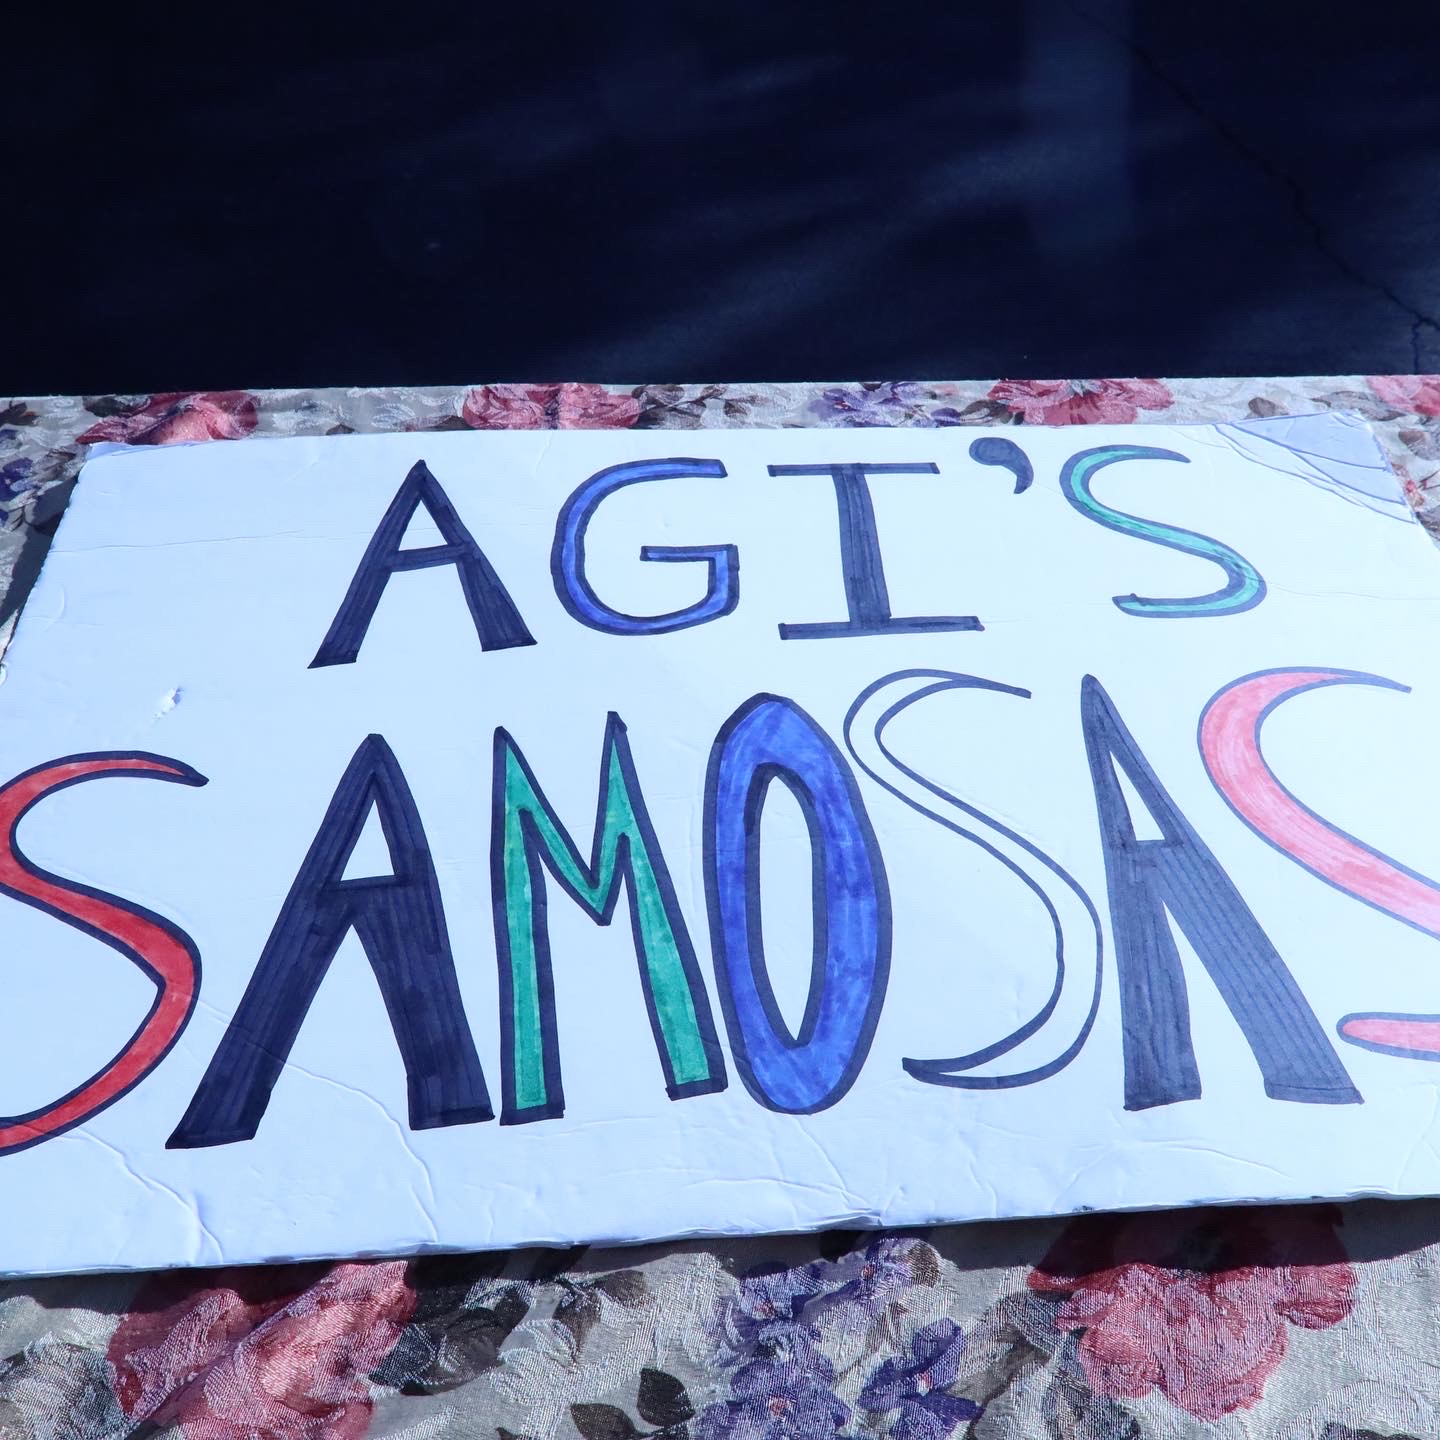 AGI'S
SAMOSAS